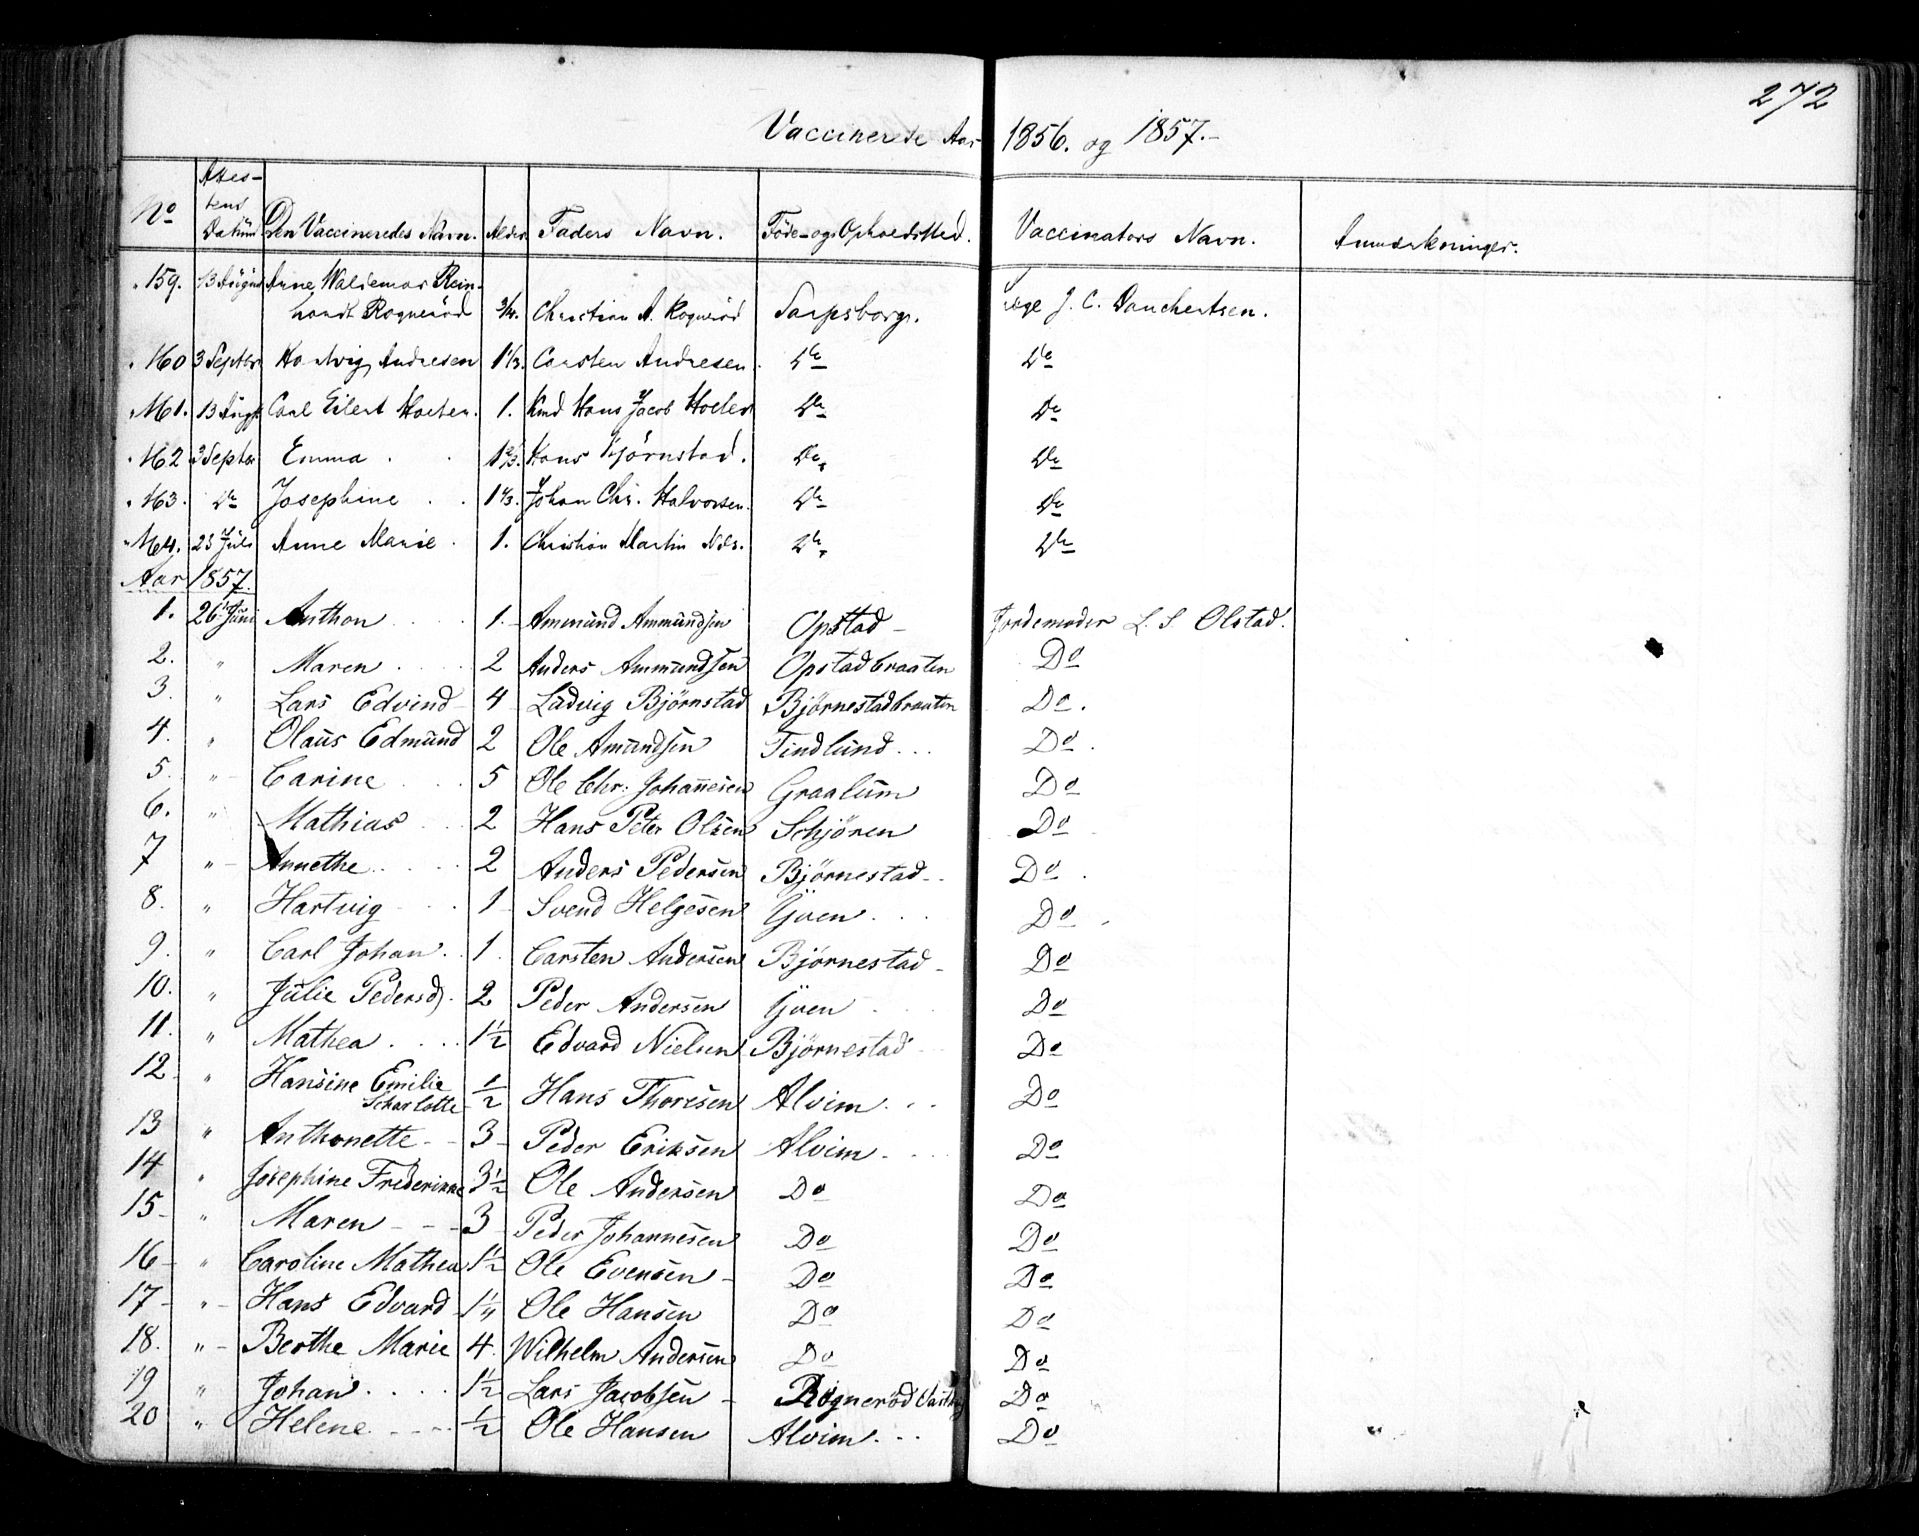 272
Vaccinerede Aar 1856. og 1857.-
No Attestens Datum Den Vaccineredes Navn. Alder Faders Navn. Føde- og Opholdsted. Vaccinators Navn. Anmærkninger.
159. 13 August Anne Waldemar Rein-
hardt Rognerød 3/4. Christian A. Rognerød Sarpsborg. Læge J. C. Danchertsen.
160 3 Septbr Hartvig Andresen 1 1/3. Carsten Andresen. Do Do
161. 13 Augt Carl Eilert Holter. 1. Hans Jacob Holter Do Do
162 3 Septbr Emma 1 2/3. Hans Bjørnstad. Do Do
163. Do Josephine 1 1/3. Johan Chr. Halvorsen. Do Do
164. 23 Juli Anne Marie 1. Christian Martin Nils. Do Do
Aar 1857.
1. 26 Juni Anthon 1 Ammund Ammundsen Opstad Jordemoder L. S. Olstad.
2. " Maren 2 Anders Ammundsen Opstadbraaten Do
3. " Lars Edvind 4 Ludvig Bjørnstad Bjørnestadbraaten Do.
4. " Olaus Edmund 2 Ole Amundsen Tindlund Do.
5. " Carine 5 Ole Chr: Johannesen Graalum Do
6. " Mathias 2 Hans Peter Olsen Schjøren Do
7 " Annethe 2 Anders Pedersen Bjørnestad Do.
8. " Hartvig 1 Svend Helgesen Yven Do
9. " Carl Johan 1 Carsten Andersen Bjørnestad Do
10. " Julie Pedersd. 2 Peder Andersen Yven Do
11. " Mathea 1 1/2 Edvard Nielsen Bjørnestad Do
12 " Hansine Emilie
Scharlotte 1/2 Hans Thoresen Alvim Do
13 " Anthonette 3 Peder Eriksen Alvim Do
14 " Josephine Frederikke 3 1/2 Ole Andersen Do Do
15 " Maren 3 Peder Johannesen Do Do
16 " Caroline Mathea 1 1/2 Ole Evensen Do Do
17 " Hans Edvard 1 1/4 Ole Hansen Do Do
18. " Berthe Marie 4. Wilhelm Andersen Do Do
19 " Johan 1 1/2 Lars Jacobsen Rognerød Do
20 " Helene 1/2 Ole Hansen Alvim Do